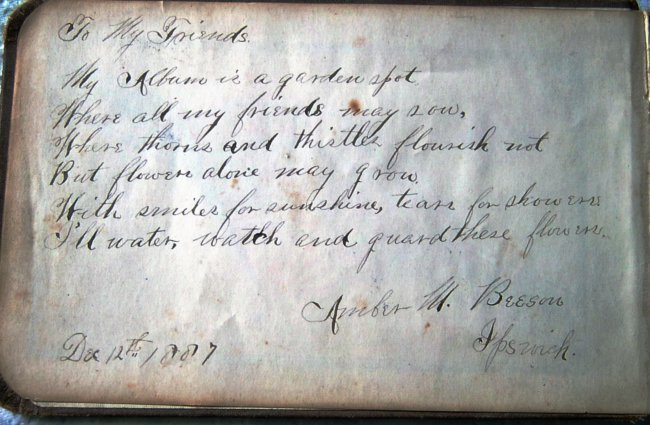 To My Friends.
My Album is a garden spot
Where all my friends may sow,
Where thorns and thistles flourish not
But flowers alone may grow.
With smiles for sunshine, tears for showers
I'll water, watch and guard these flowers.
Amber M. Beeson
Ipswich.
Dec 12th, 1887